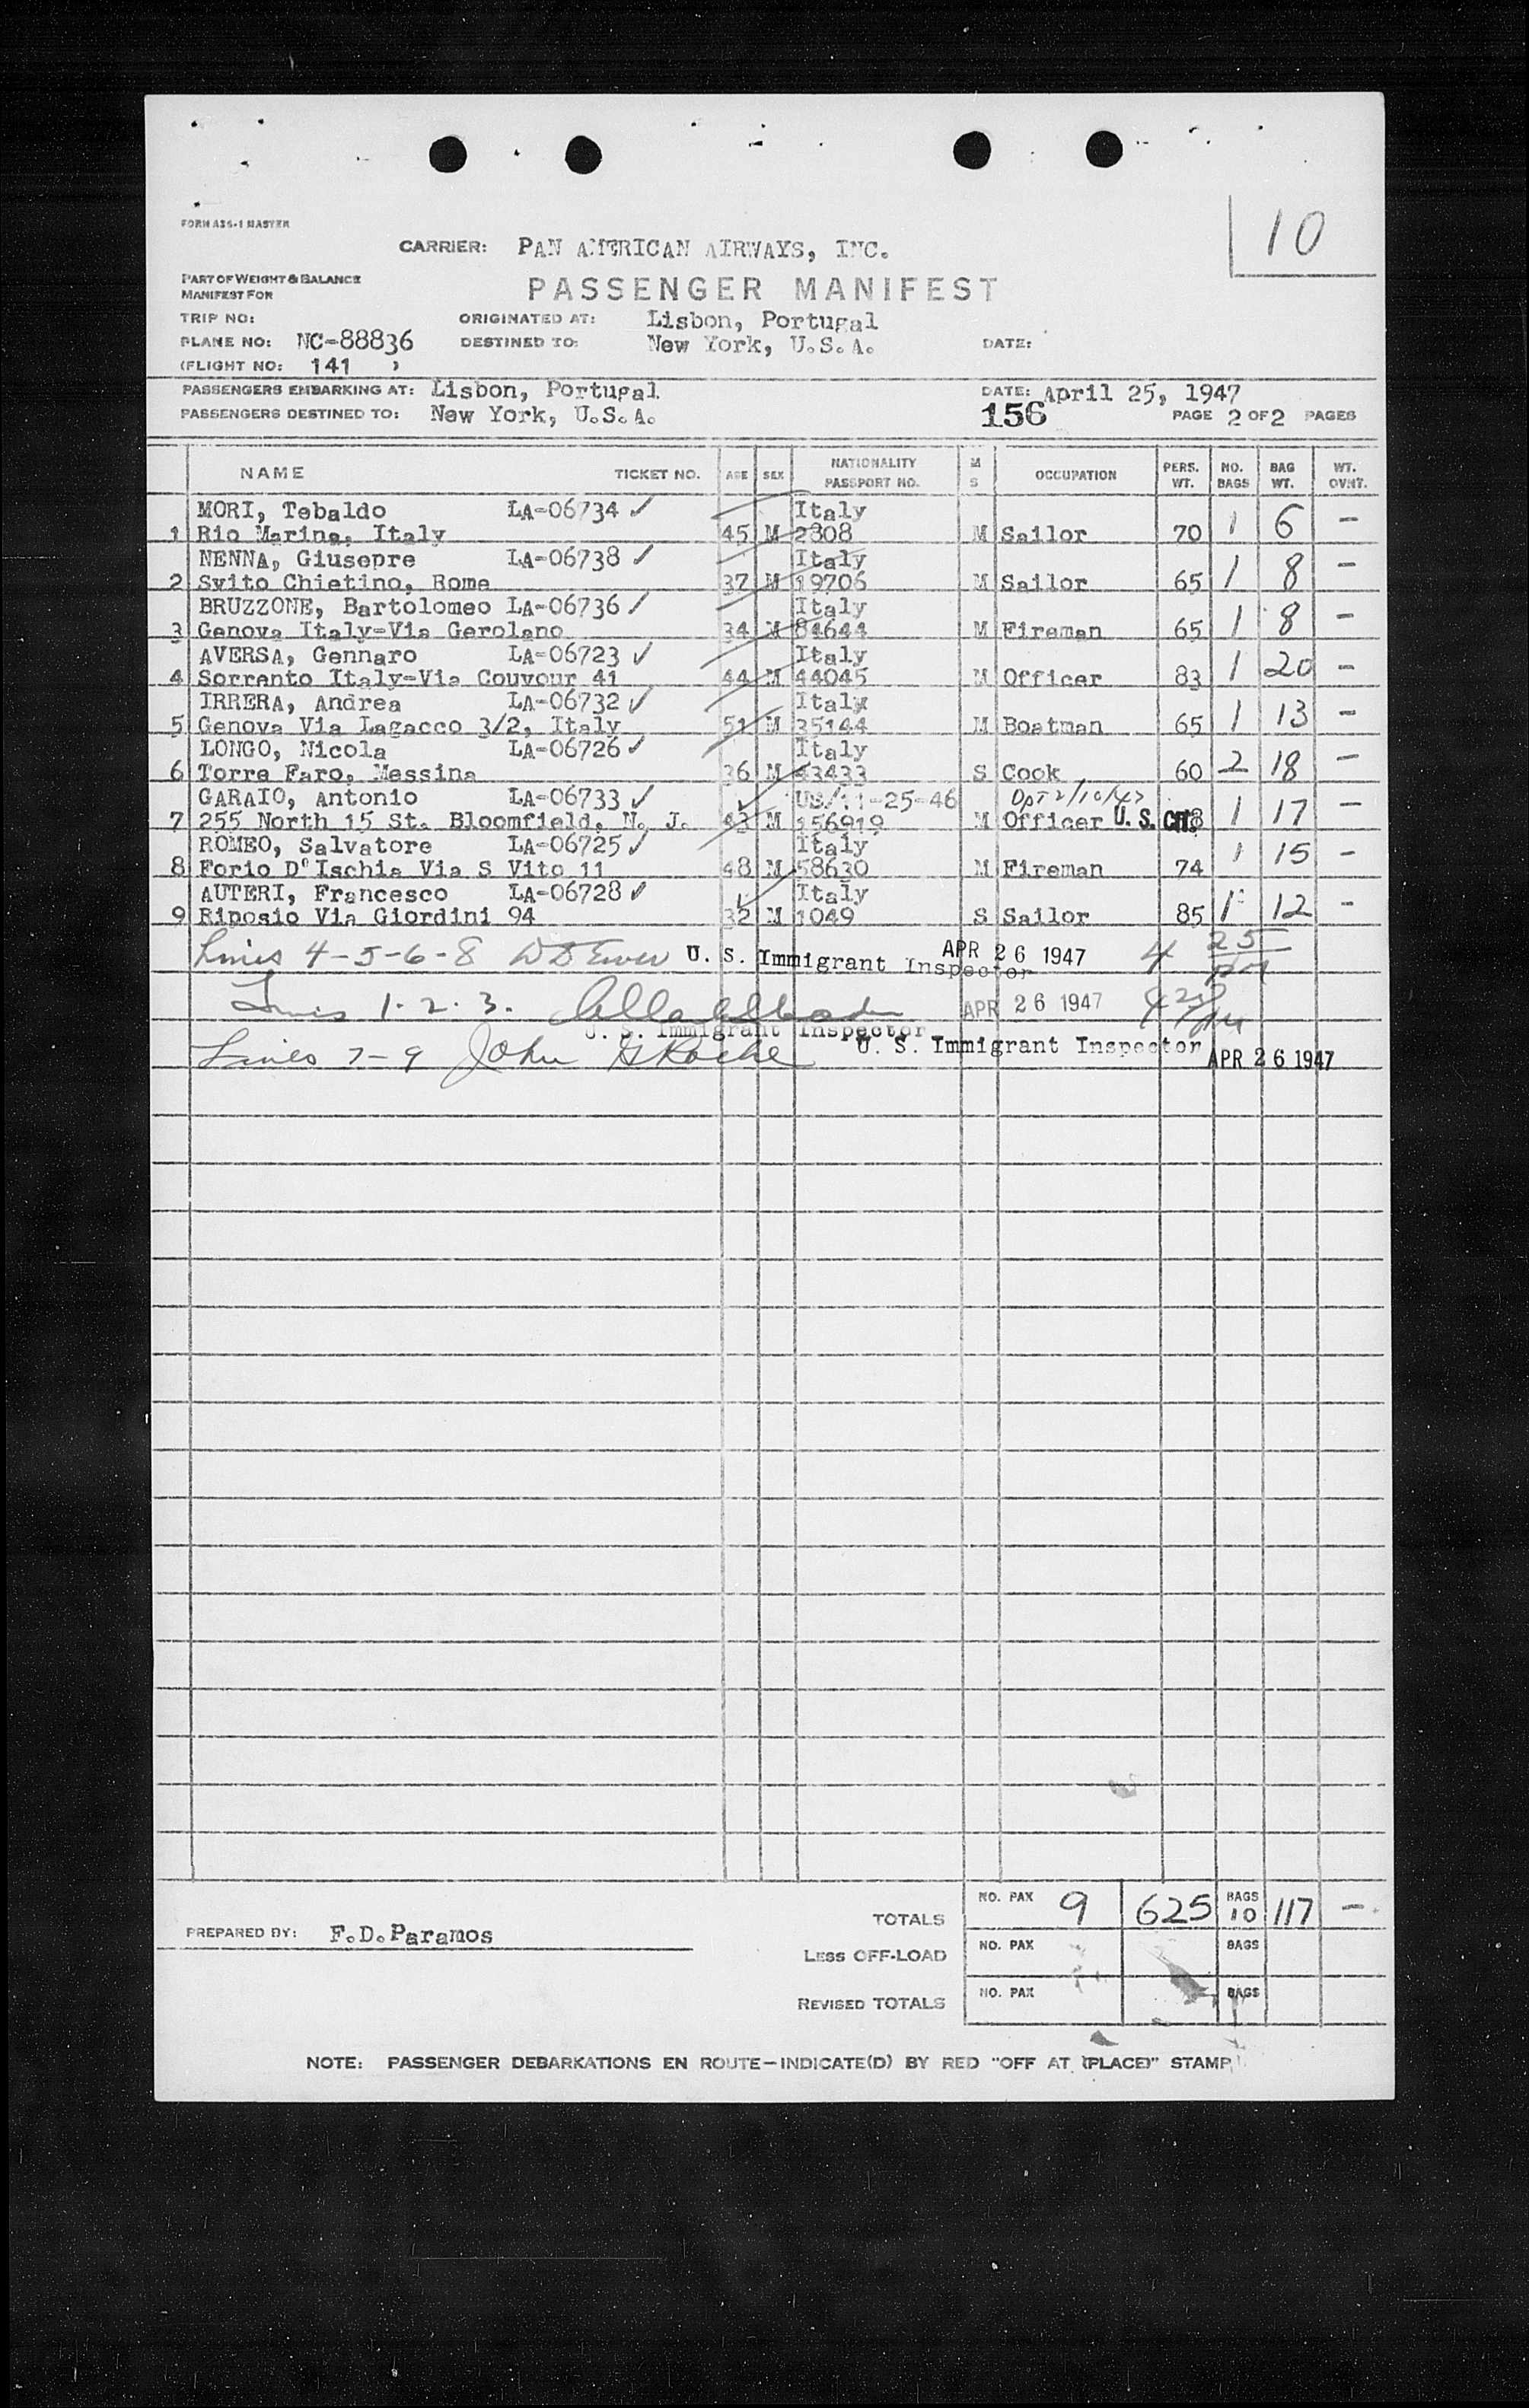 10
FORM A36-1 MASTER
CARRIER: PAN AMERICAN AIRWAYS, INC.
PART OF WEIGHT & BALANCE
MANIFEST FOR
PASSENGER MANIFEST
TRIP NO: ORIGINATED AT: Lisbon, Portugal
PLANE NO: NC-88836 DESTINED TO: New York, U.S.A. DATE:
(FLIGHT NO: 141 )
PASSENGERS EMBARKING AT: Lisbon, Portugal DATE: April 25, 1947
PASSENGERS DESTINED TO: New York, U.S.A. 156 PAGE 2 OF 2 PAGES
NAME TICKET NO. AGE SEX NATIONALITY PASSPORT NO. M S OCCUPATION PERS. WT. NO. BAGS BAG WT. WT. OVNT.
MORI, Tebaldo LA-06734 ✓ Italy
1 Rio Marina, Italy 45 M 2808 M Sailor 70 1 6 -
NENNA, Giusepre LA-06738 ✓ Italy
2 Svito Chietino, Rome 37 M 19706 M Sailor 65 1 8 -
BRUZZONE, Bartolomeo LA-06736 ✓ Italy
3 Genova Italy-Via Gerolano 34 M 84644 M Fireman 65 1 8 -
AVERSA, Gennaro LA-06723 ✓ Italy
4 Sorrento Italy-Via Couvour 41 44 M 44045 M Officer 83 1 20 -
IRRERA, Andrea LA-06732 ✓ Italy
5 Genova Via Lagacco 3/2, Italy 51 M 35144 M Boatman 65 1 13 -
LONGO, Nicola LA-06726 ✓ Italy
6 Torre Faro, Messina 36 M 43433 S Cook 60 2 18 -
GARAIO, Antonio LA-06733 ✓ US/11-25-46 Dpt 2/10/47
7 255 North 15 St. Bloomfield, N. J. 43 M 156919 M Officer U. S. CIT. 1 17 -
ROMEO, Salvatore LA-06725 ✓ Italy
8 Forio D'Ischia Via S Vito 11 48 M 58630 M Fireman 74 1 15 -
AUTERI, Francesco LA-06728 ✓ Italy
9 Riposio Via Giordini 94 32 M 1049 S Sailor 85 1 12 -
Lines 4-5-6-8 U. S. Immigrant Inspector APR 26 1947 4 25
Lines 1.2.3. APR 26 1947
U. S. Immigrant Inspector
Lines 7-9 John G Roche U. S. Immigrant Inspector APR 26 1947
TOTALS NO. PAX 9 625 BAGS 10 117 -
PREPARED BY: F.D.Paramos
LESS OFF-LOAD NO. PAX BAGS
REVISED TOTALS NO. PAX BAGS
NOTE: PASSENGER DEBARKATIONS EN ROUTE-INDICATE(D) BY RED "OFF AT (PLACE)" STAMP